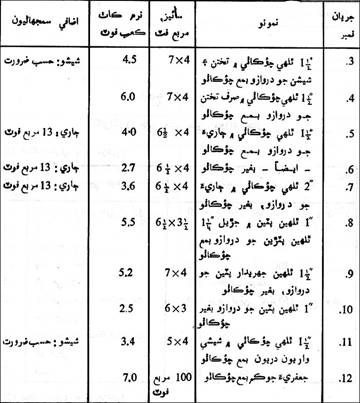 جريان نمبر | نمونو | سائيز، مربع فٽ | نرم ڪاٺ ڪعب فوٽ | اضافي سمجهاڻيون
3. | 1½" ٿلهي چؤڪاٺي ۾ تختن ۽ شيشن جو دروازو بمع چؤڪاٺو | 7×4 | 4.5 | شيشو: حسب ضرورت
4. | 1½" ٿلهي چؤڪاٺي ۾ صرف تختن جو دروازو بمع چؤڪاٺو | 7×4 | 6.0
5. | 1½" ٿلهي چؤڪاٺي ۾ ڄاريءَ جو دروازو بمع چؤڪاٺو | 6½ ×4 | 4.0 | ڄاري: 13 مربع فوٽ
6. | - ايضاً - بغير چؤڪاٺو | 6½ ×4 | 2.7 | ڄاري: 13 مربع فوٽ
7. | 2" ٿلهي چؤڪاٺي ۾ ڄاريءَ جو دروازو، بغير چؤڪاٺو | 6½ ×4 | 3.6 | ڄاري: 13 مربع فوٽ
8. | 1" ٿلهين پٽين ۾ جڙيل 1½" ٿلهين پٽڙين جو دروازو بمع چؤڪاٺو | 6½×3½ | 5.5
9. | 1½" ٿلهين جهريدار پٽين جو دروازو، بغير چؤڪاٺو | 7×4 | 5.2
10. | 1" ٿلهين پٽين جو دروازو بغير چؤڪاٺو | 6×3 | 2.5
11. | 1½" ٿلهي چؤڪاٺي ۾ شيشي واريون دريون بمع چؤڪاٺو | 5×4 | 3.4 | شيشو: حسب ضرورت
12. | جعفريءَ جو ڪم بمع چؤڪاٺو | 100 مربع فوٽ | 7.0